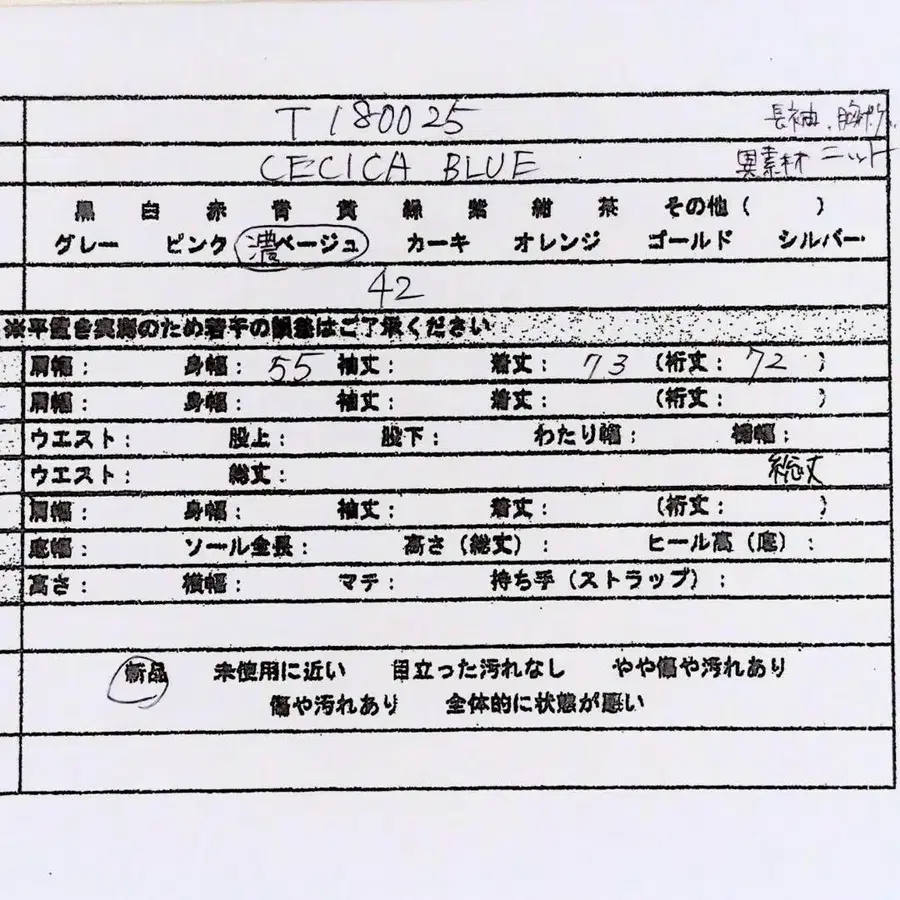 T180025 長袖、胸ポケ
CECICA BLUE 異素材ニット
黒 白 赤 青 黄 緑 紫 紺 茶 その他（ ）
グレー ピンク 濃ベージュ カーキ オレンジ ゴールド シルバー
42
※平置き実寸のため若干の誤差はご了承ください
肩幅： 身幅：55 袖丈： 着丈：73 （裄丈：72）
肩幅： 身幅： 袖丈： 着丈： （裄丈： ）
ウエスト： 股上： 股下： わたり幅： 裾幅：
ウエスト： 総丈： 総丈
肩幅： 身幅： 袖丈： 着丈： （裄丈： ）
底幅： ソール全長： 高さ（総丈）： ヒール高（底）：
高さ： 横幅： マチ： 持ち手（ストラップ）：
新品 未使用に近い 目立った汚れなし やや傷や汚れあり
傷や汚れあり 全体的に状態が悪い